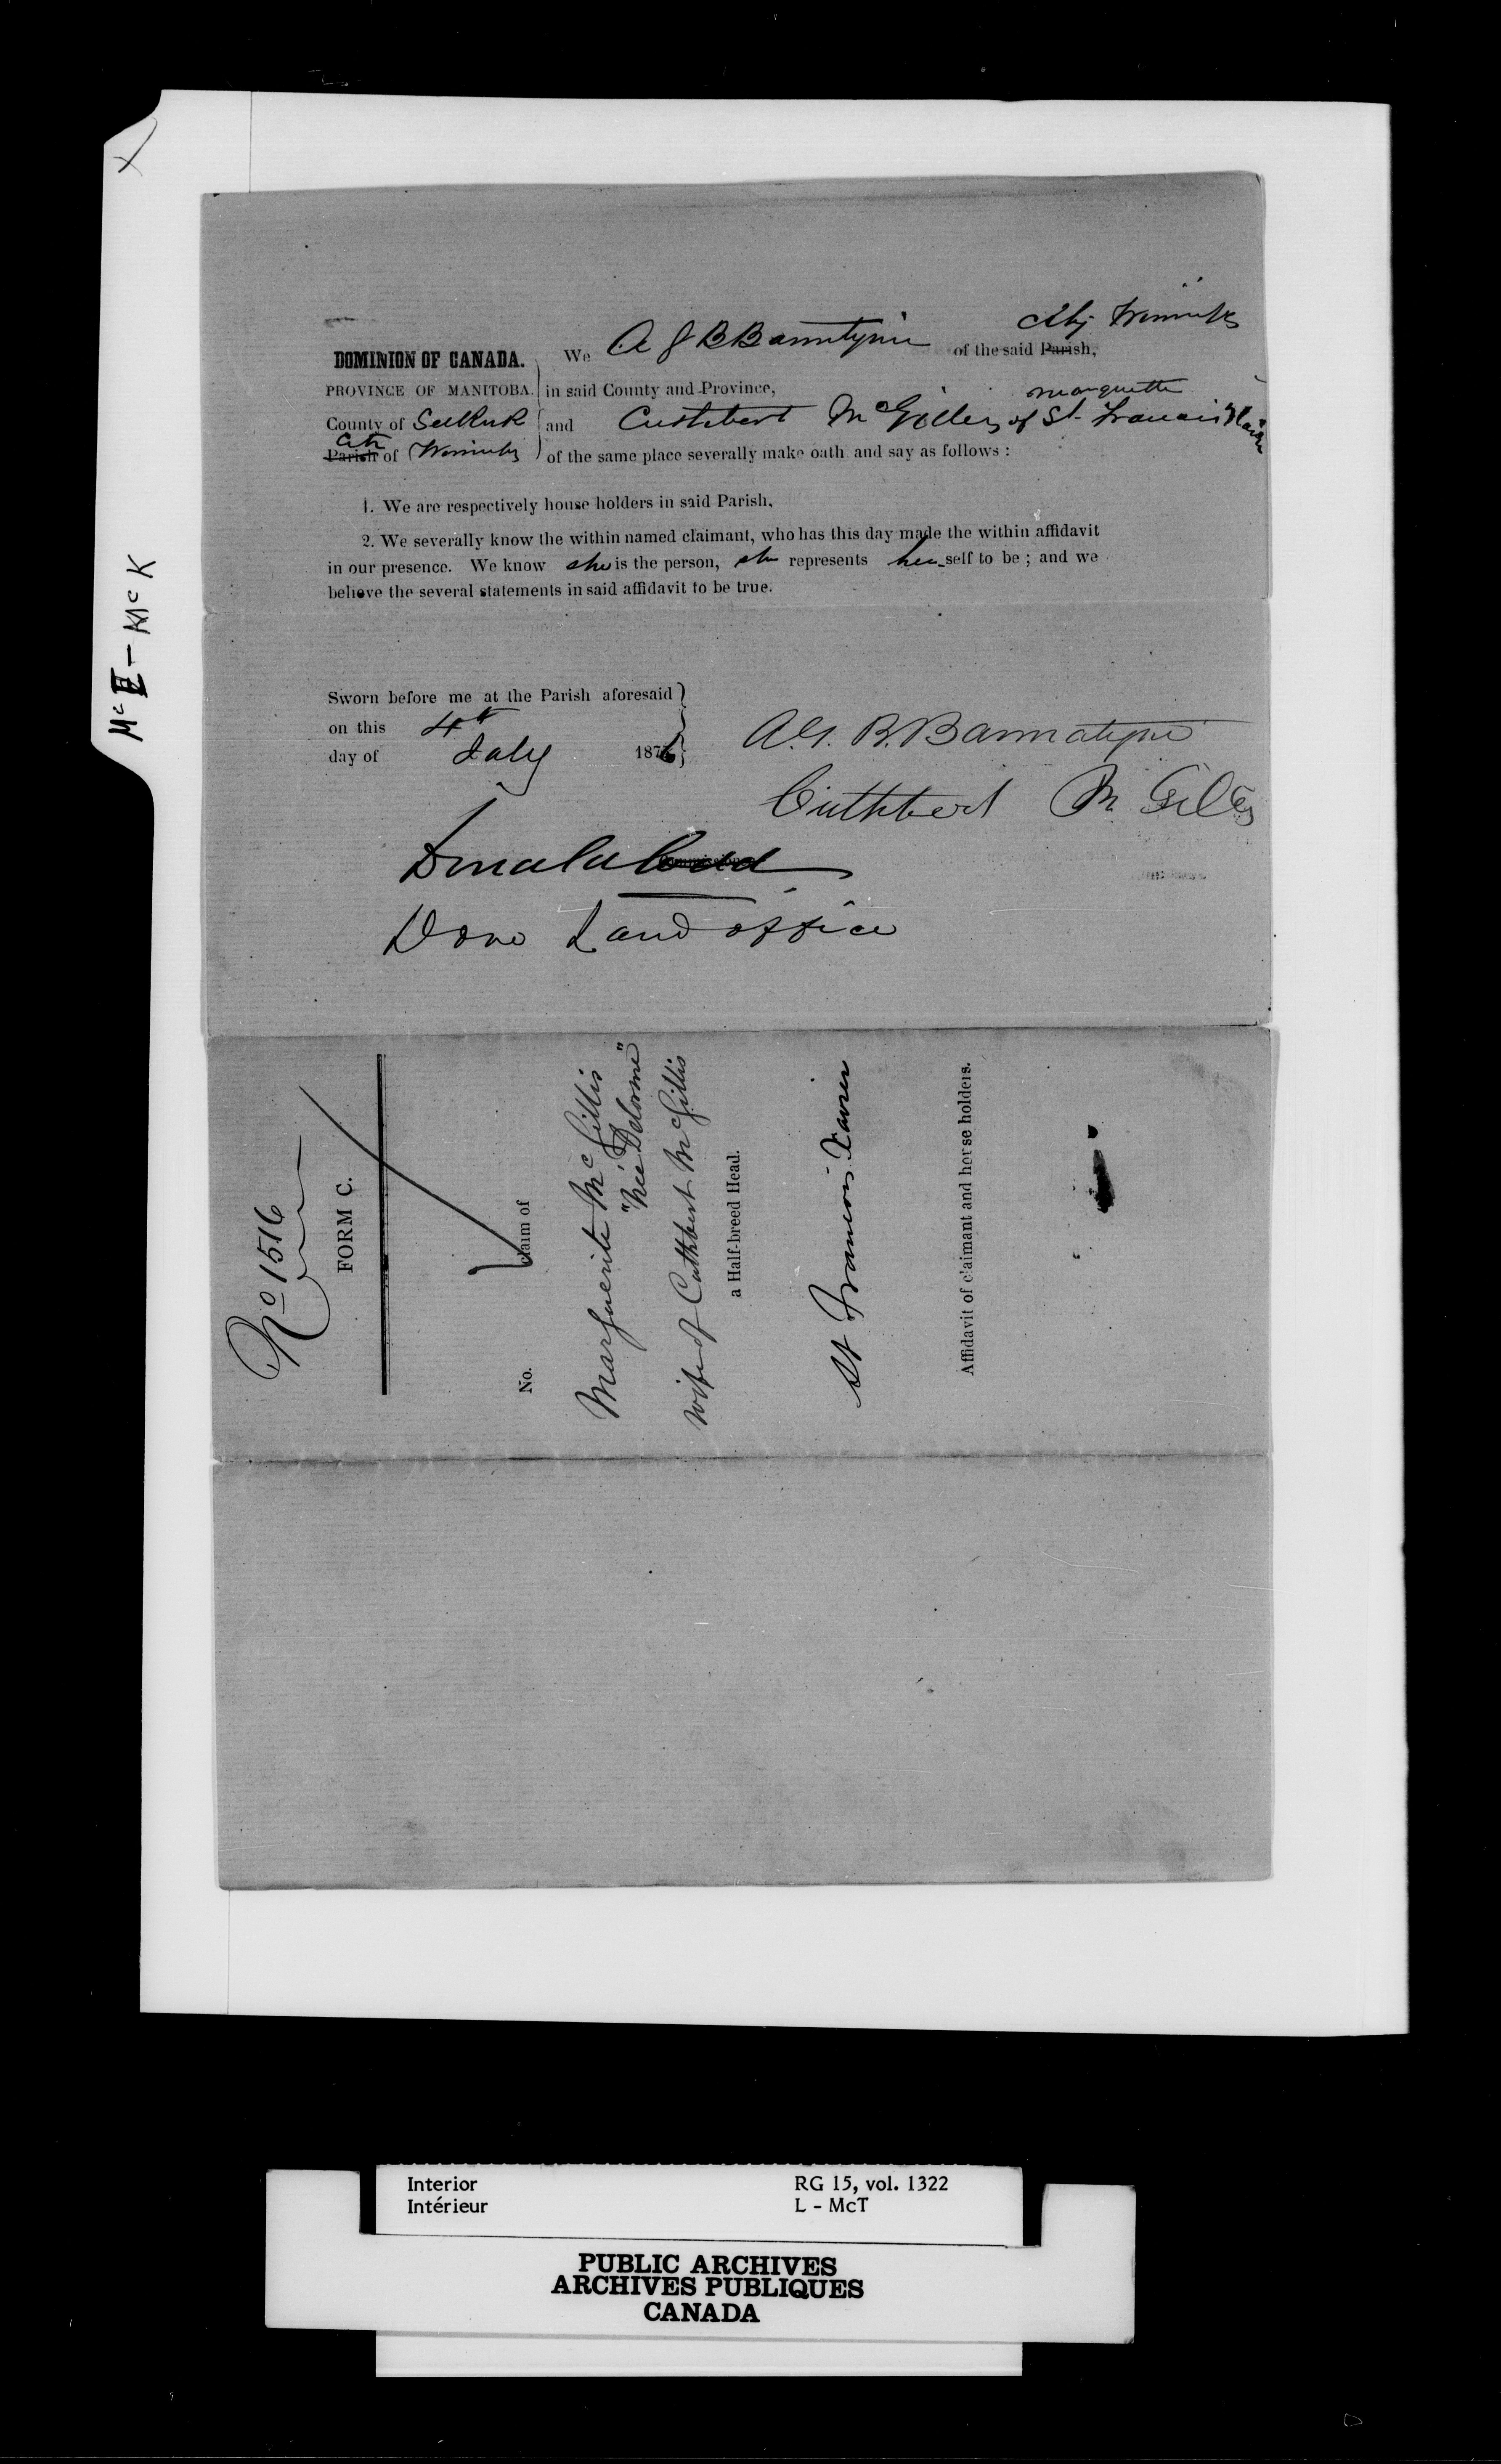 X
McE - McK
City Winnipeg
DOMINION OF CANADA. We A G B Bannatyne of the said Parish,
PROVINCE OF MANITOBA. in said County and Province,
Marquette
County of Selkirk and Cuthbert McGilles of St. Francois Xavier
City
Parish of Winnipeg of the same place severally make oath and say as follows :
1. We are respectively house holders in said Parish,
2. We severally know the within named claimant, who has this day made the within affidavit
in our presence. We know she is the person, she represents her self to be ; and we
believe the several statements in said affidavit to be true.
Sworn before me at the Parish aforesaid
on this 4th
day of July 1876
A. G. B. Bannatyne
Cuthbert Mc Gilles
Donald Codd
Dom Land office
No 1516
FORM C.
No. Claim of
Marguerite McGillis
"Nee Delorme"
wife of Cuthbert McGillis
a Half-breed Head.
St Francois Xavier
Affidavit of claimant and horse holders.
Interior RG 15, vol. 1322
Intérieur L - McT
PUBLIC ARCHIVES
ARCHIVES PUBLIQUES
CANADA